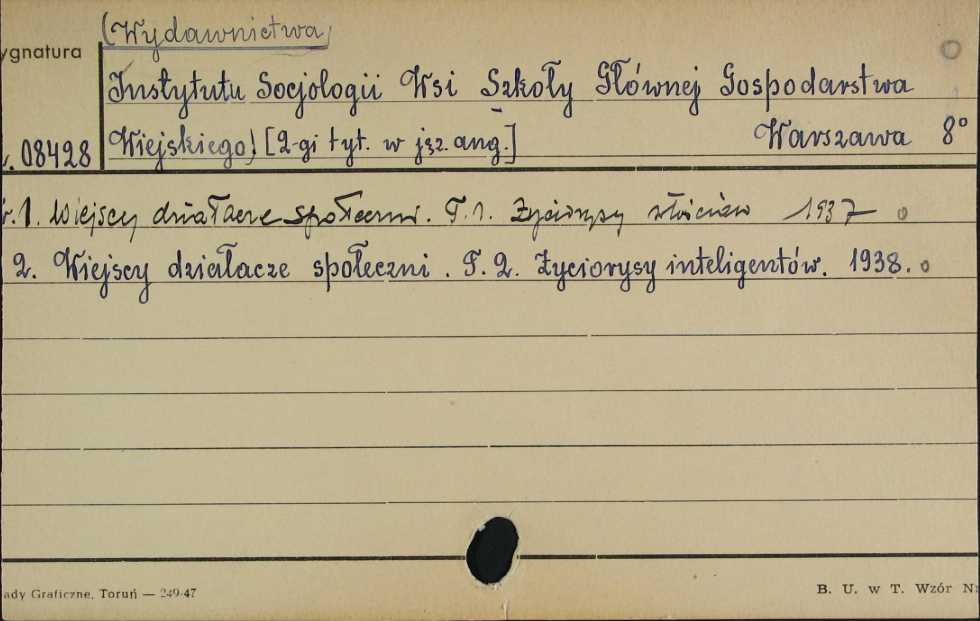 (Wydawnictwa
ygnatura
Instytutu Socjologii Wsi Szkoły Głównej Gospodarstwa
Wiejskiego) [2-gi tyt. w jęz. ang.] Warszawa 8°
08428
1. Wiejscy działacze społeczni. T. 1. Życiorysy włościan 1937
2. Wiejscy działacze społeczni. T. 2. Życiorysy inteligentów. 1938.
ady Graficzne, Toruń — 249-47
B. U. w T. Wzór N